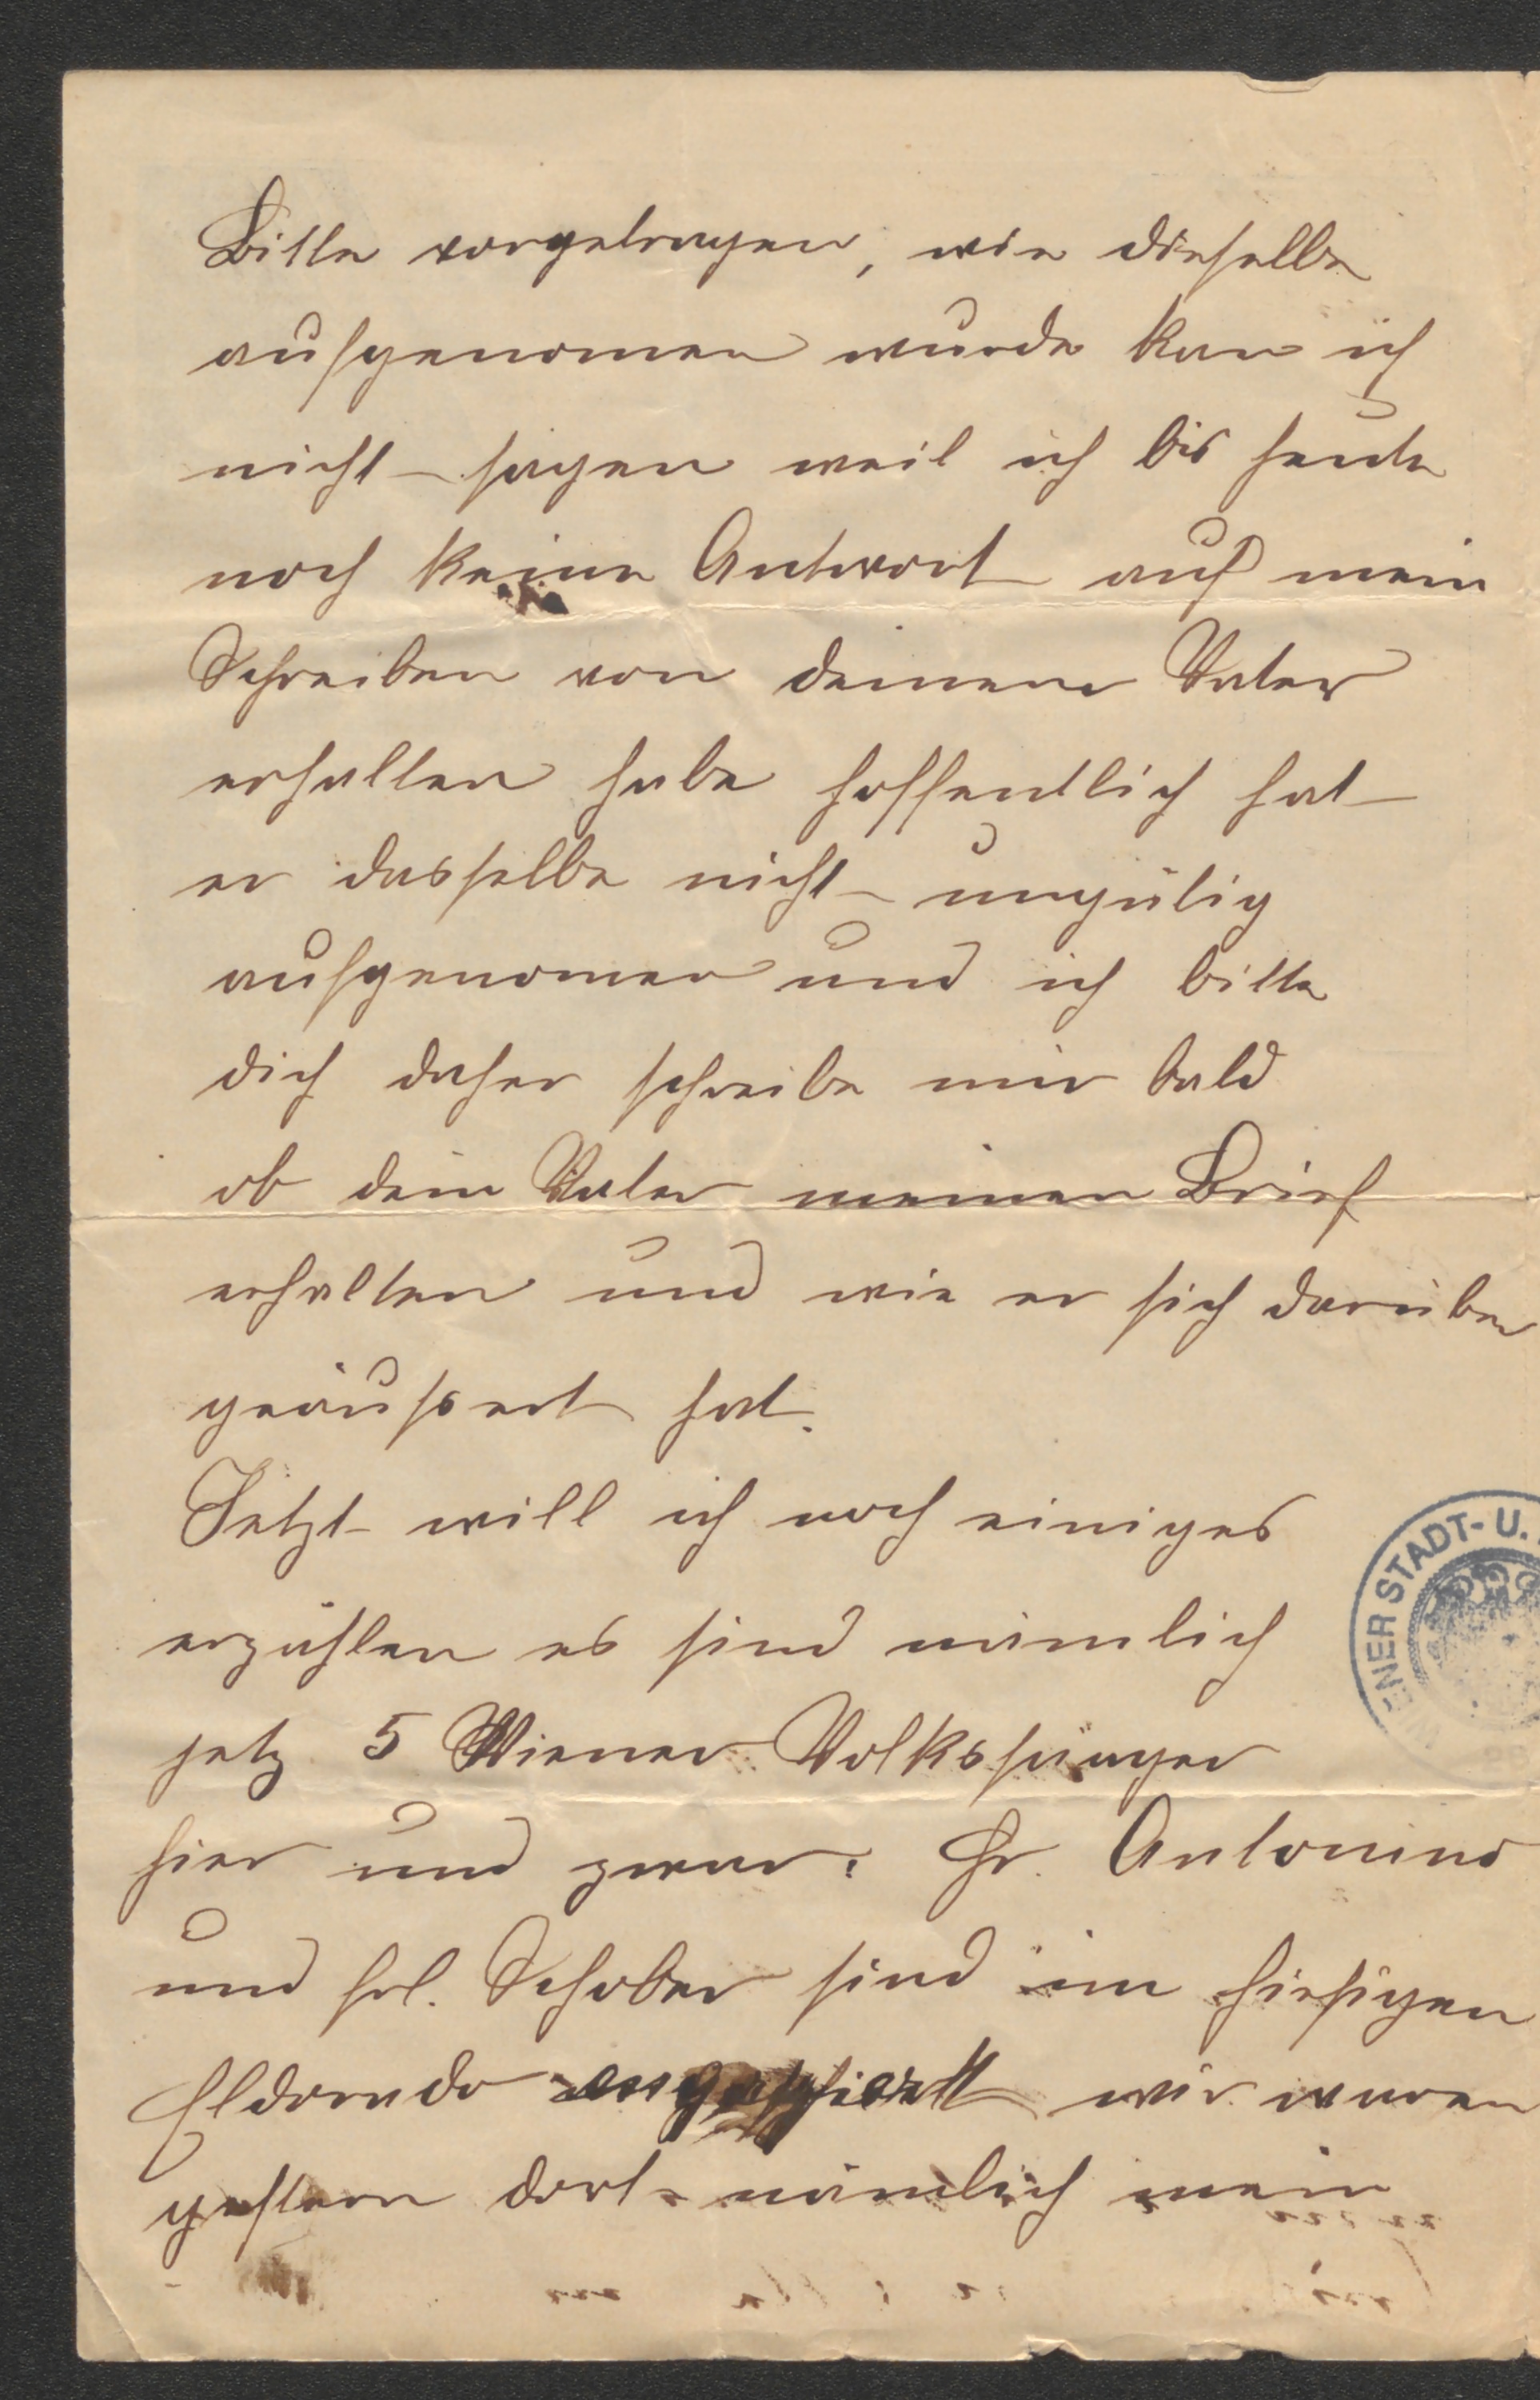 Bitte vorgetragen, wie dieselbe
aufgenomen wurde kan ich
nicht sagen weil ich bis heute
noch keine Antwort auf mein
Schreiben von deinem Vater
erhalten habe hoffentlich hat
er dasselbe nicht ungütig
aufgenomen und ich bitte
dich daher schreibe mir bald
ob dein Vater meinen Brief
erhalten und wie er sich darüber
geäußert hat.
Jetzt will ich noch einiges
erzählen es sind nämlich
jetz 5 Wiener Volkssänger
hier und zwar: Hr. Antonius
und frl. Schober sind im hiesigen
Eldorado wir waren
gestern dort nämlich mein
WIENER STADT- U.